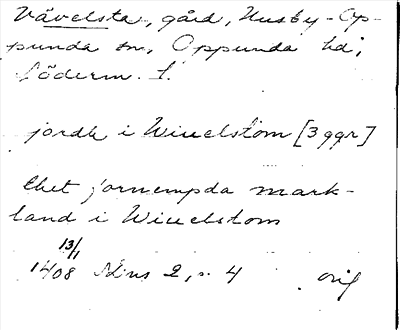 Vävelsta, gård, Husby-Op-
punda sn, Oppunda hd,
Söderm. l.
jordh i Wiuelstom [3 ggr]
thet fornempda mark-
land i Wiuelstom
13/1
1408 NMns 2, s. 4 orig